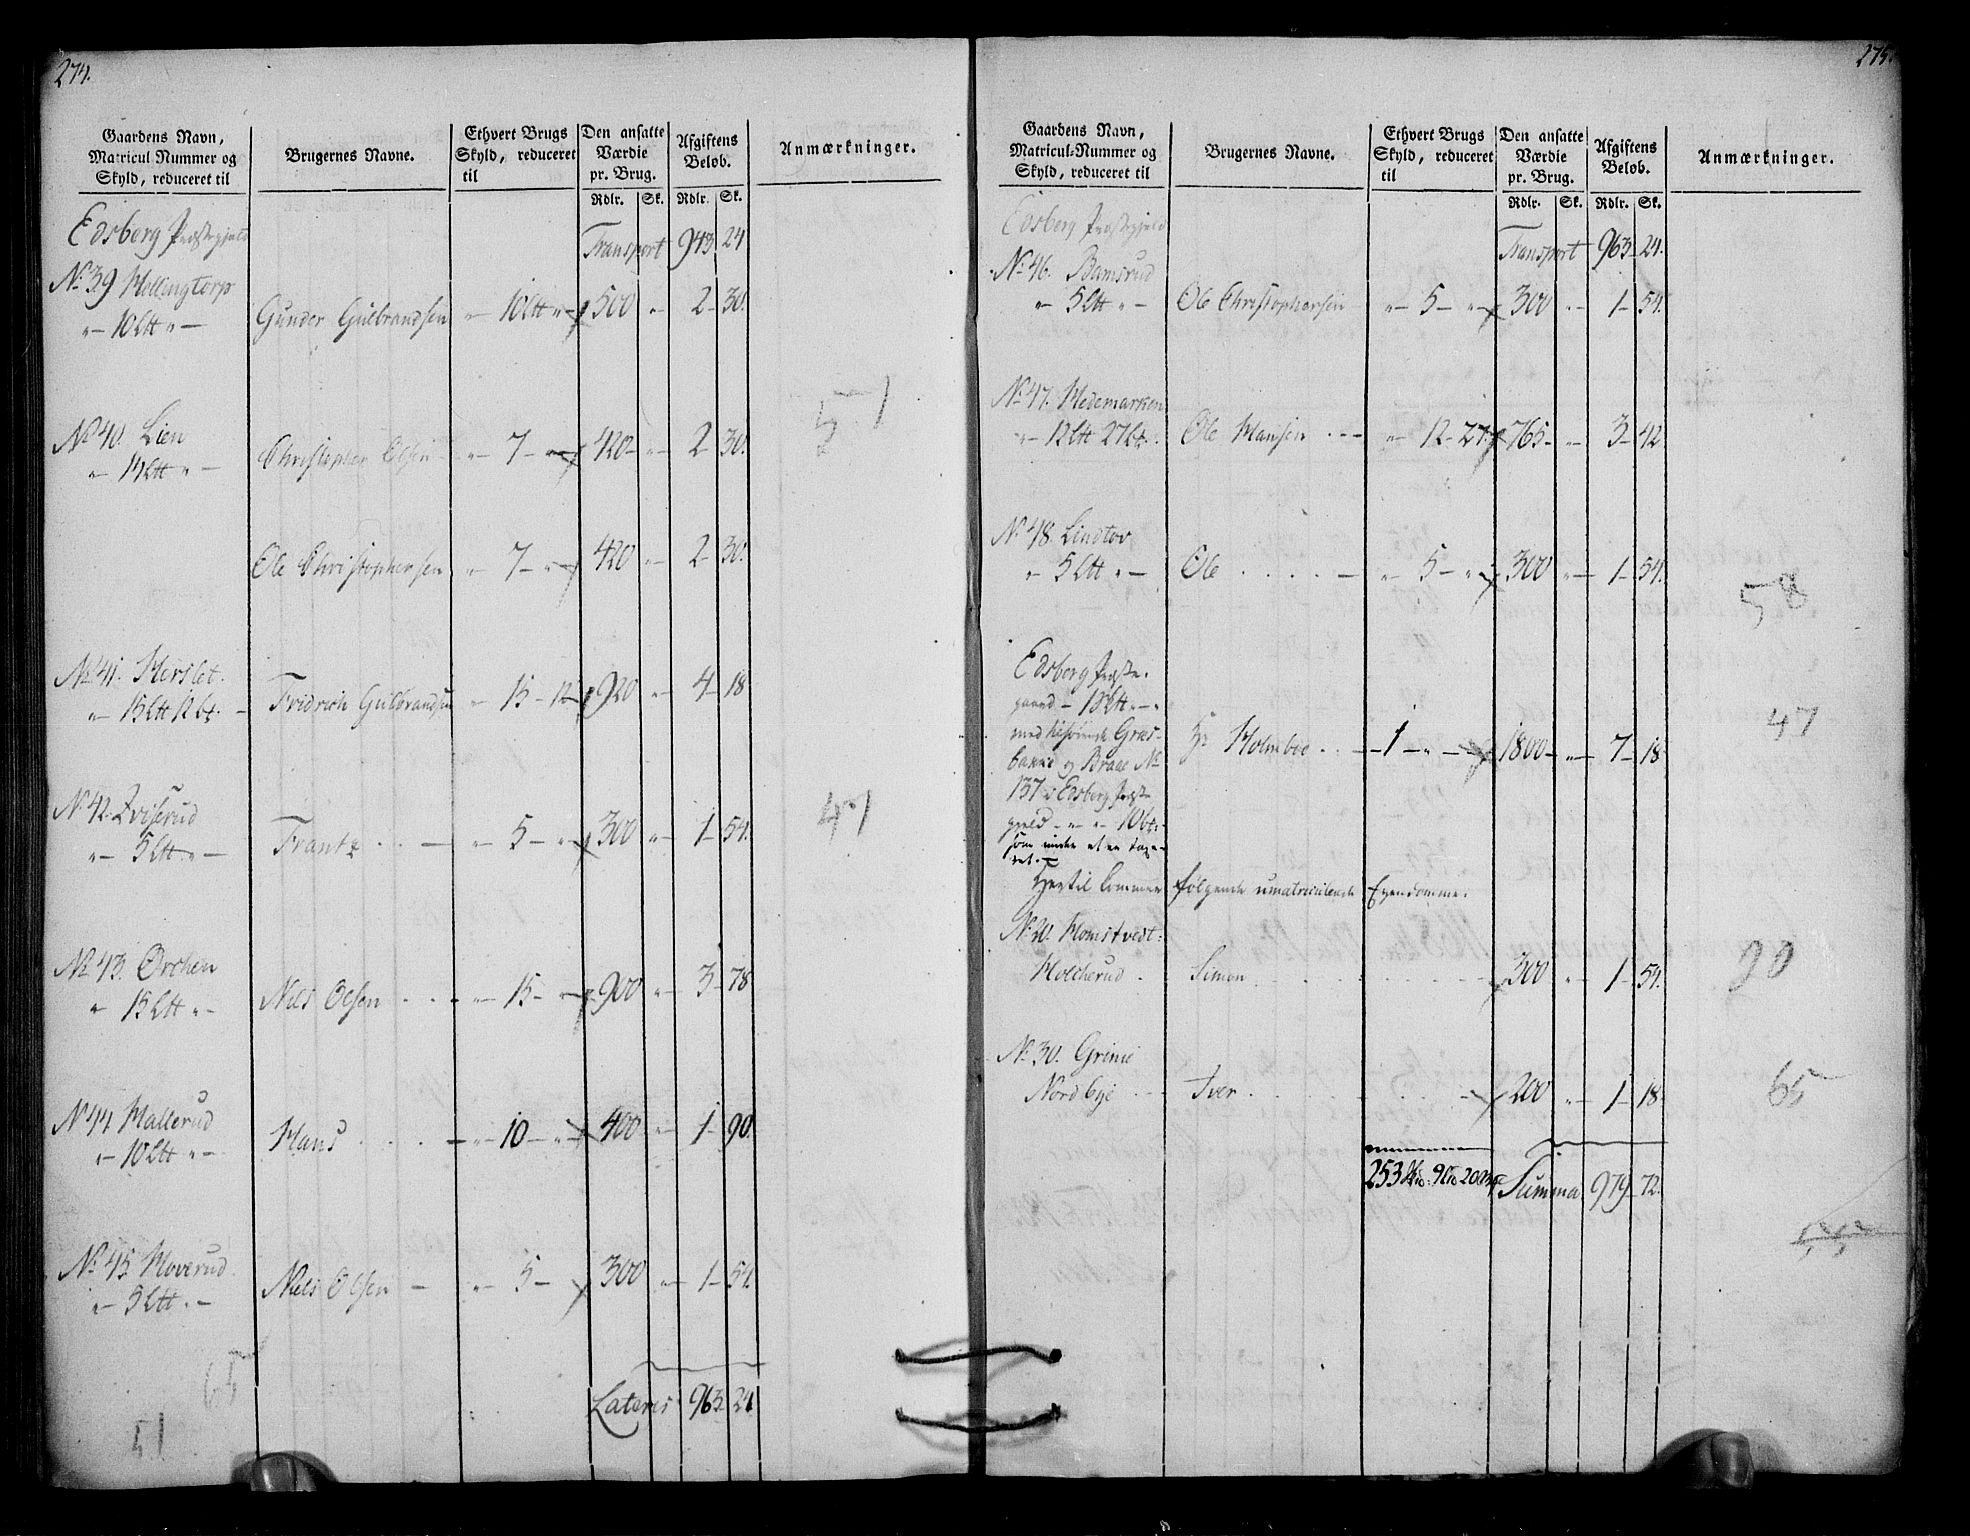 274.
Gaardens Navn,
Matricul Nummer og
Skyld, reduceret til
Brugernes Navne.
Ethvert Brugs
Skyld, reduceret
til
Den ansatte
Værdie
pr. Brug.
Rdlr. Sk.
Afgiftens
Beløb.
Rdlr. Sk.
Anmærkninger.
Edsberg Præstegjeld Transport 943 24
No 39 Hollingtorp
"— 10 Ltt "— Gunder Gulbrandsen "— 10 Ltt "— 500 "— 2— 30.
51
No 40. Lien
"— 14 Ltt "— Christopher Olsen "— 7— "— 420— "— 2— 30.
Ole Christophersen "— 7— "— 420 "— 2— 30.
No 41. Herslet.
"— 15 Ltt 12 — Fridrich Gulbrandsen "— 15— 12— 920 "— 4— 18
No 42. Zviserud
"— 5 Ltt "— Frantz "— 5— "— 300 "— 1— 54.
47
No 43. Ørchen
"— 15 Ltt "— Niels Olsen "— 15— "— 900 "— 3— 78
No 44 Hallerud
"— 10 Ltt "— Hans "— 10— "— 400 "— 1— 90.
No 45 Hoverud
"— 5 Ltt "— Niels Olsen — "— 5— 300 "— 1— 54.
65
51
Lateris 963 24
275.
Gaardens Navn,
Matricul-Nummer og
Skyld, reduceret til
Brugernes Navne.
Ethvert Brugs
Skyld, reduceret
til
Den ansatte
Værdie
pr. Brug.
Rdlr. Sk.
Afgiftens
Beløb.
Rdlr. Sk.
Anmærkninger.
Edsberg Præstegjeld Transport 963 24.
No 46. Bamsrud
"— 5 Ltt "— Ole Christophersen "— 5— "— 300 "— 1— 54.
No 47. Hedemarken
"— 12 Ltt 27 Ole Hansen "— 12— 27. 765— "— 3— 42
No 48. Lindtov
"— 5 Ltt "— Ole "— 5— "— 300 "— 1— 54.
58
Edsberg Præste-
gaard — "—
med Græs-
bakke og Braae No Hr Holmboe —1— "— 1800— "— 7— 18
47
137 i Edsberg Præste
gjeld — "— "— 10
som under et er tage-
ret. —
Hertil kommer følgende umatriculerede Ejendomme.
No 20. Homstvedt:
Holcherud Simon 300 "— 1— 54.
20
No 30. Grimé
Nordbye Iver 200 "— 1— 18
65
253 9 20 Summa 979 72.